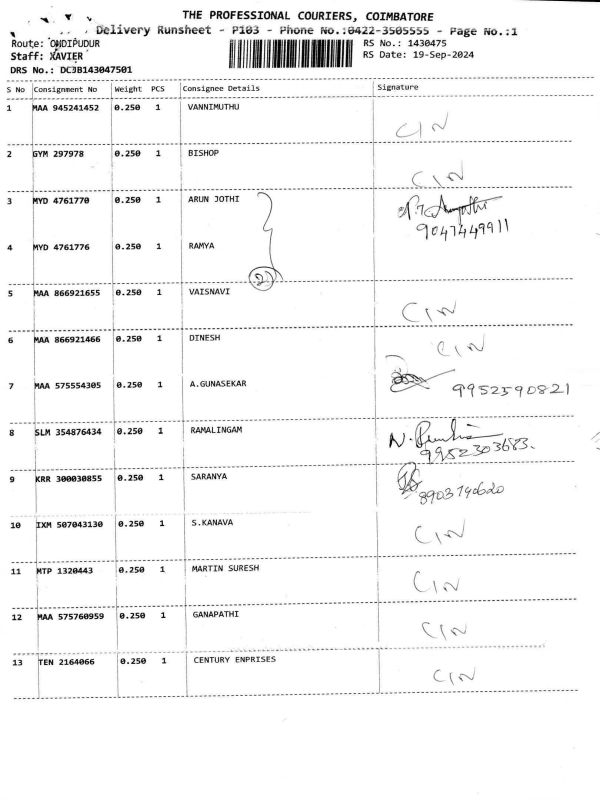 THE PROFESSIONAL COURIERS, COIMBATORE
Delivery Runsheet - P103 - Phone No.:0422-3505555 - Page No.:1
Route: ONDIPUDUR RS No.: 1430475
Staff: XAVIER RS Date: 19-Sep-2024
DRS No.: DC3B143047501
S No Consignment No Weight PCS Consignee Details Signature
1 MAA 945241452 0.250 1 VANNIMUTHU CIN
2 GYM 297978 0.250 1 BISHOP CIN
3 MYD 4761770 0.250 1 ARUN JOTHI
9047449911
4 MYD 4761776 0.250 1 RAMYA
2
5 MAA 866921655 0.250 1 VAISNAVI CIN
6 MAA 866921466 0.250 1 DINESH CIN
7 MAA 575554305 0.250 1 A.GUNASEKAR 9952590821
8 SLM 354876434 0.250 1 RAMALINGAM
9952303683.
9 KRR 300030855 0.250 1 SARANYA
8903740620
10 IXM 507043130 0.250 1 S.KANAVA CIN
11 MTP 1320443 0.250 1 MARTIN SURESH CIN
12 MAA 575760959 0.250 1 GANAPATHI CIN
13 TEN 2164066 0.250 1 CENTURY ENPRISES CIN